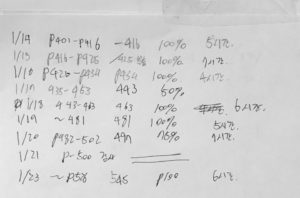 1/14 P401-P416 -416 100% 5시간.
1/15 P416-P426 100% 시간.
1/16 P426-P434 P434 100% 4시간.
1/17 435-463 443 50%
1/18 443-463 463 100% 6시간.
1/19 ~ 481 481 100% 5시간.
1/20 P482-502 491 시간.
1/21 P-500
1/23 ~ 545 P100 6시간.